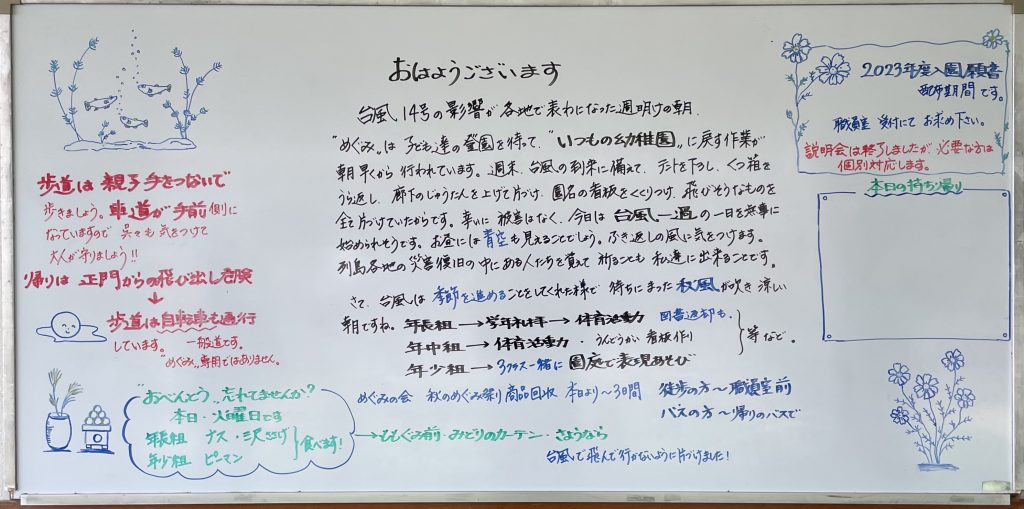 おはようございます
台風14号の影響が各地で表わになった週明けの朝
"めぐみ"は子ども達の登園を待って、"いつもの幼稚園"に戻す作業が
朝早くから行われています。週末、台風の到来に備えて、テントを下ろし、くつ箱を
うら返し、廊下のじゅうたんを上げて片づけ、園名の看板をくくりつけ、飛びそうなものを
全て片づけていたからです。幸いに被害はなく、今日は台風一過の一日を無事に
始められそうです。お昼には青空も見えることでしょう。ふき返しの風に気をつけます。
列島各地の災害復旧の中にある人たちを覚えて祈ることも私達に出来ることです。
さて、台風は季節を進めることをしてくれた様で待ちにまった秋風が吹き涼しい
朝ですね。年長組→学年礼拝→体育活動 図書返却も。
年中組→体育活動・うんどうかい看板作り
年少組→3クラス一緒に園庭で表現あそび
等など。
めぐみの会 秋のめぐみ祭り商品回収 本日より〜3日間 徒歩の方〜職員室前
バスの方〜帰りのバスで
歩道は親子手をつないで
歩きましょう。車道が手前側に
なっていますので呉々も気をつけて
大人が守りましょう!!
帰りは正門からの飛び出し危険
↓
歩道は自転車も通行
しています。一般道です。
"めぐみ"専用ではありません。
"おべんとう"忘れてませんか?
本日・火曜日です
年長組 ナス・三尺ささげ
年少組 ピーマン
食べます!
→ももぐみ前・みどりのカーテン・さようなら
台風で飛んで行かないように片づけました!
2023年度入園願書
配布期間です。
職員室受付にてお求め下さい。
説明会は終了しましたが必要な方は
個別対応します。
本日の持ち帰り